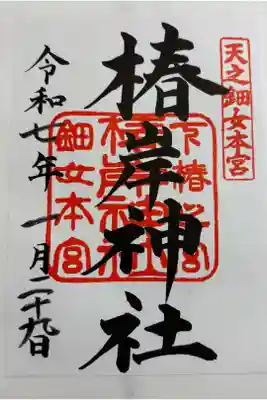 天之鈿女本宮
椿岸神社
椿岸神社
鈿女本宮
令和七年 一月二十九日